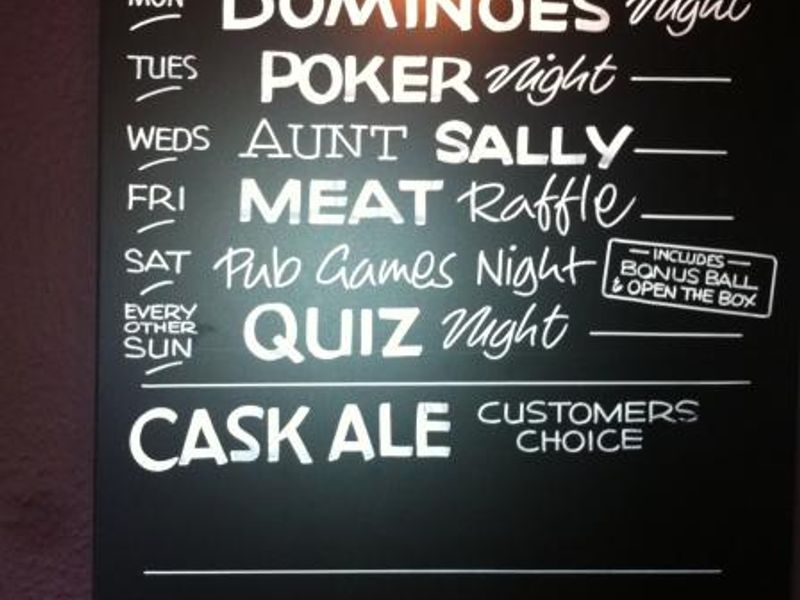 MON DOMINOES Night
TUES POKER Night
WEDS AUNT SALLY
FRI MEAT Raffle
SAT Pub Games Night
INCLUDES
BONUS BALL
& OPEN THE BOX
EVERY
OTHER
SUN QUIZ Night
CASK ALE
CUSTOMERS
CHOICE